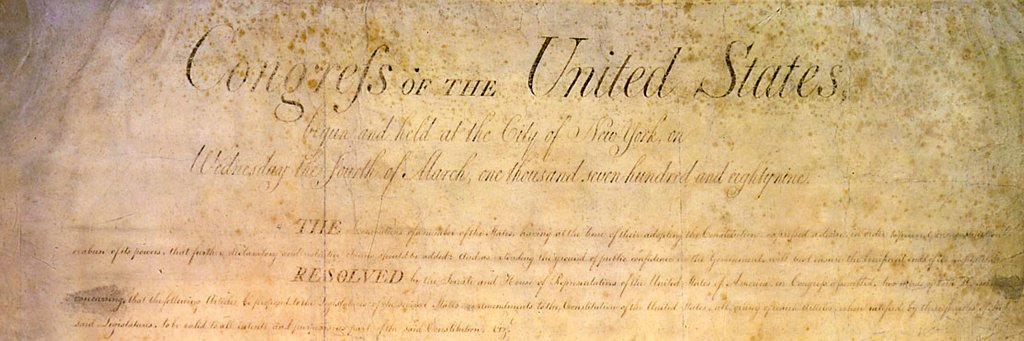 Congreſs OF THE United States,
begun and held at the City of New York, on
Wednesday the fourth of March, one thousand seven hundred and eighty nine.
THE Conventions of a number of the States, having at the time of their adopting the Constitution, expressed a desire, in order to prevent
of its powers, that further declaratory and restrictive clauses should be added: And as extending the ground of public confidence in the Government, will best ensure the beneficent ends of its
RESOLVED by the Senate and House of Representatives of the United States of America, in Congreſs aſsembled, two thirds of both Houses
concurring, that the following Articles be proposed to the Legislatures of the several States, as amendments to the Constitution of the United States, all, or any of which Articles, when ratified by three fourths of the
said Legislatures, to be valid to all intents and purposes, as part of the said Constitution; viz.